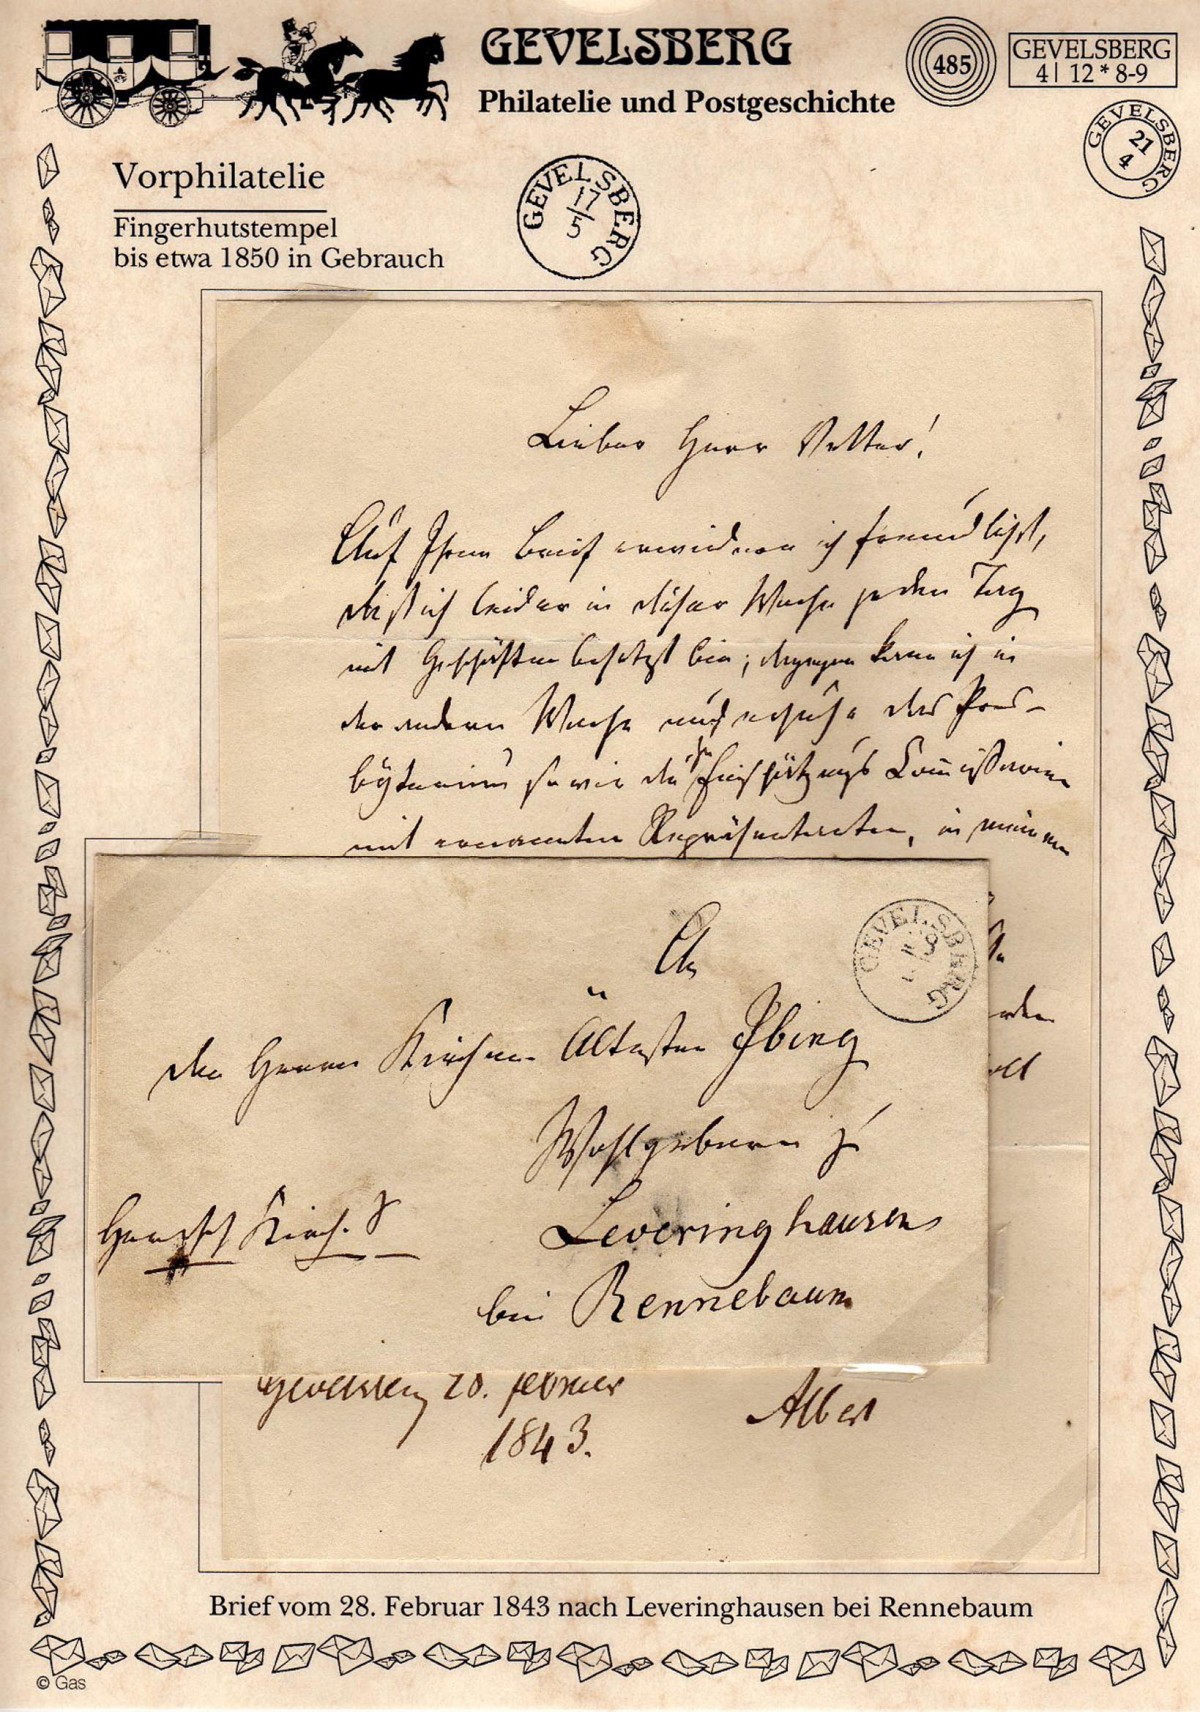 GEVELSBERG
Philatelie und Postgeschichte
485
GEVELSBERG
4| 12 * 8-9
GEVELSBERG
21
4
Vorphilatelie
Fingerhutstempel
bis etwa 1850 in Gebrauch
GEVELSBERG
17
5
Lieber Herr Vetter!
Auf Ihren Brief erwiedere ich freundlichst,
daß ich leider in dieser Woche jeden Tag
mit Geschäften besetzt bin; dagegen kann ich in
der andern Woche das Pres-
byterium sowie die Einschätzungs Commission
mit ernannten Repräsentanten, in meinem
GEVELSBERG
An
den Herrn Kirchen Ältesten Ibing
Wohlgeboren zu
Leveringhausen
bei Rennebaum
Kirch. S
Gevelsberg 28. Februar
1843.
Albert
Brief vom 28. Februar 1843 nach Leveringhausen bei Rennebaum
© Gas